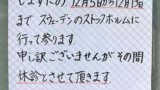 12月5日から12月13日
まで スウェーデンのストックホルムに
行って参ります
申し訳ございませんがその間
休診とさせて頂きます